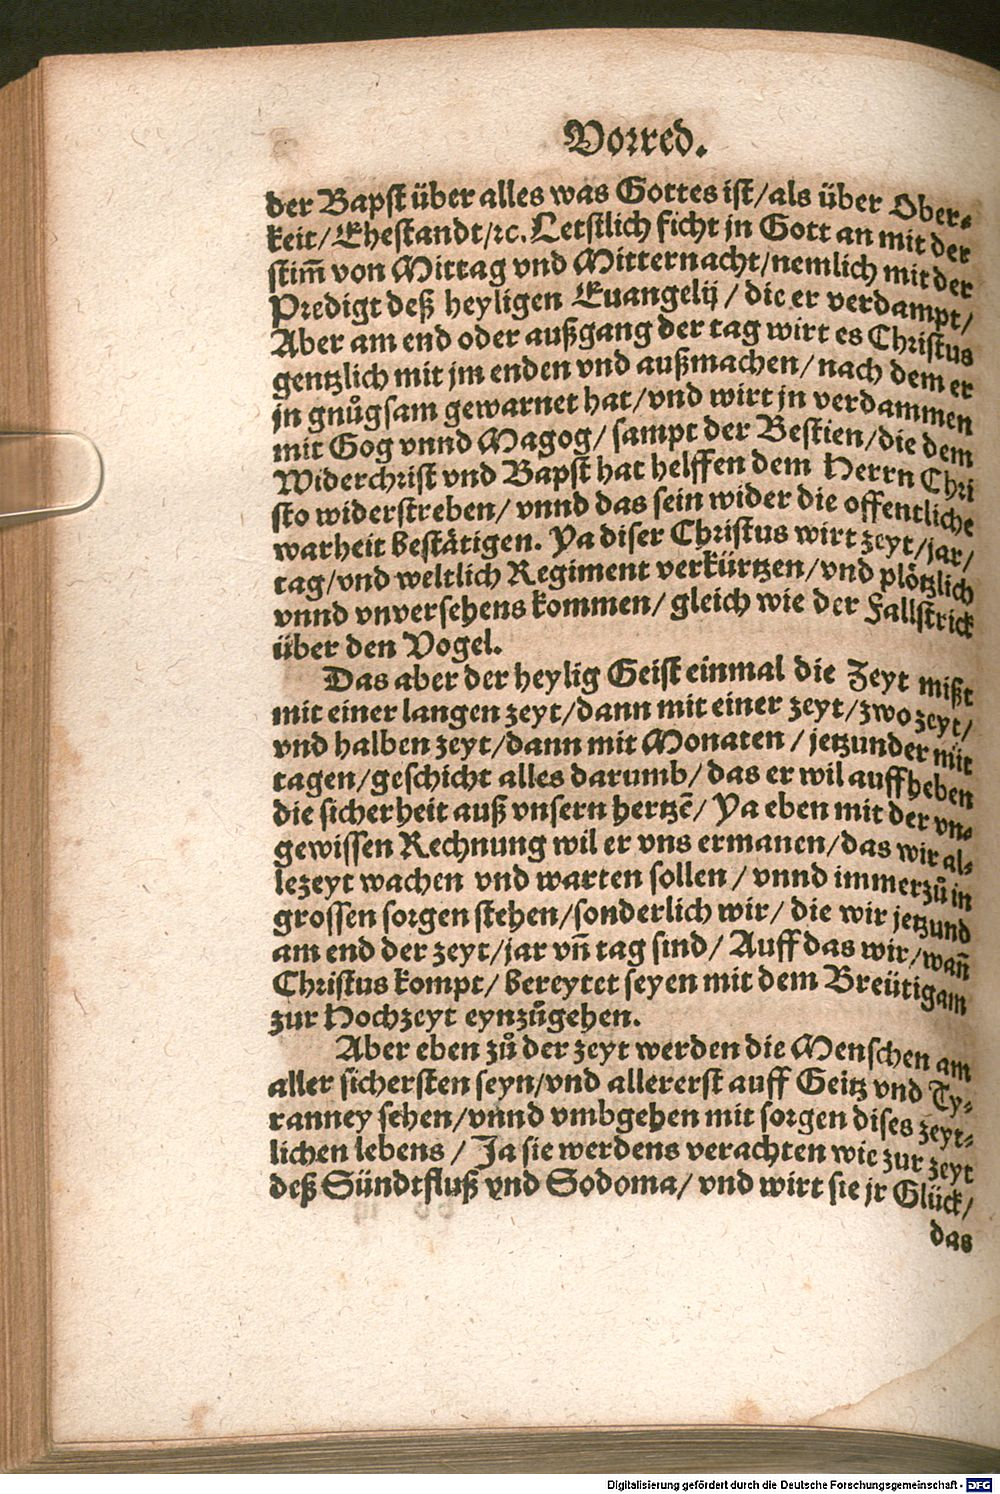 Vorred.
der Bapst über alles was Gottes ist/als über Ober-
keit/Ehestandt/ꝛc. Letstlich ficht jn Gott an mit der
stim̃ von Mittag vnd Mitternacht/nemlich mit der
Predigt deß heyligen Euangelij / die er verdampt/
Aber am end oder außgang der tag wirt es Christus
gentzlich mit jm enden vnd außmachen/ nach dem er
jn gnůgsam gewarnet hat/vnd wirt jn verdammen
mit Gog vnnd Magog/ sampt der Bestien/die dem
Widerchrist vnd Bapst hat helffen dem Herrn Chri
sto widerstreben/ vnnd das sein wider die offentliche
warheit bestätigen. Ya diser Christus wirt zeyt/jar/
tag/vnd weltlich Regiment verkürtzen/vnd plötzlich
vnnd vnversehens kommen/ gleich wie der Fallstrick
über den Vogel.
Das aber der heylig Geist einmal die Zeyt mißt
mit einer langen zeyt/dann mit einer zeyt/zwo zeyt/
vnd halben zeyt/dann mit Monaten / jetzunder mit
tagen/geschicht alles darumb/ das er wil auffheben
die sicherheit auß vnsern hertzẽ/ Ya eben mit der vn-
gewissen Rechnung wil er vns ermanen/das wir al-
lezeyt wachen vnd warten sollen / vnnd immerzů in
grossen sorgen stehen/sonderlich wir/ die wir jetzund
am end der zeyt/jar vñ tag sind/ Auff das wir/wañ
Christus kompt/ bereytet seyen mit dem Breütigam
zur Hochzeyt eynzůgehen.
Aber eben zů der zeyt werden die Menschen am
aller sichersten seyn/vnd allererst auff Geitz vnd Ty-
ranney sehen/vnnd vmbgehen mit sorgen dises zeyt-
lichen lebens / Ja sie werdens verachten wie zur zeyt
deß Sündtfluß vnd Sodoma/ vnd wirt sie jr Glück/
das
Digitalisierung gefördert durch die Deutsche Forschungsgemeinschaft - DFG